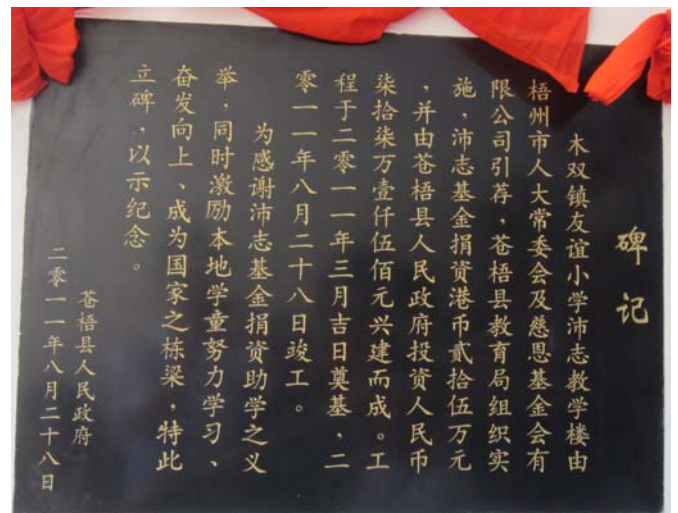 碑记
木双镇友谊小学沛志教学楼由
梧州市人大常委会及慈恩基金会有
限公司引荐，苍梧县教育局组织实
施，沛志基金捐资港币贰拾伍万元
，并由苍梧县人民政府投资人民币
柒拾柒万壹仟伍佰元兴建而成。工
程于二零一一年三月吉日奠基，二
零一一年八月二十八日竣工。
为感谢沛志基金捐资助学之义
举，同时激励本地学童努力学习、
奋发向上、成为国家之栋梁，特此
立碑，以示纪念。
苍梧县人民政府
二零一一年八月二十八日